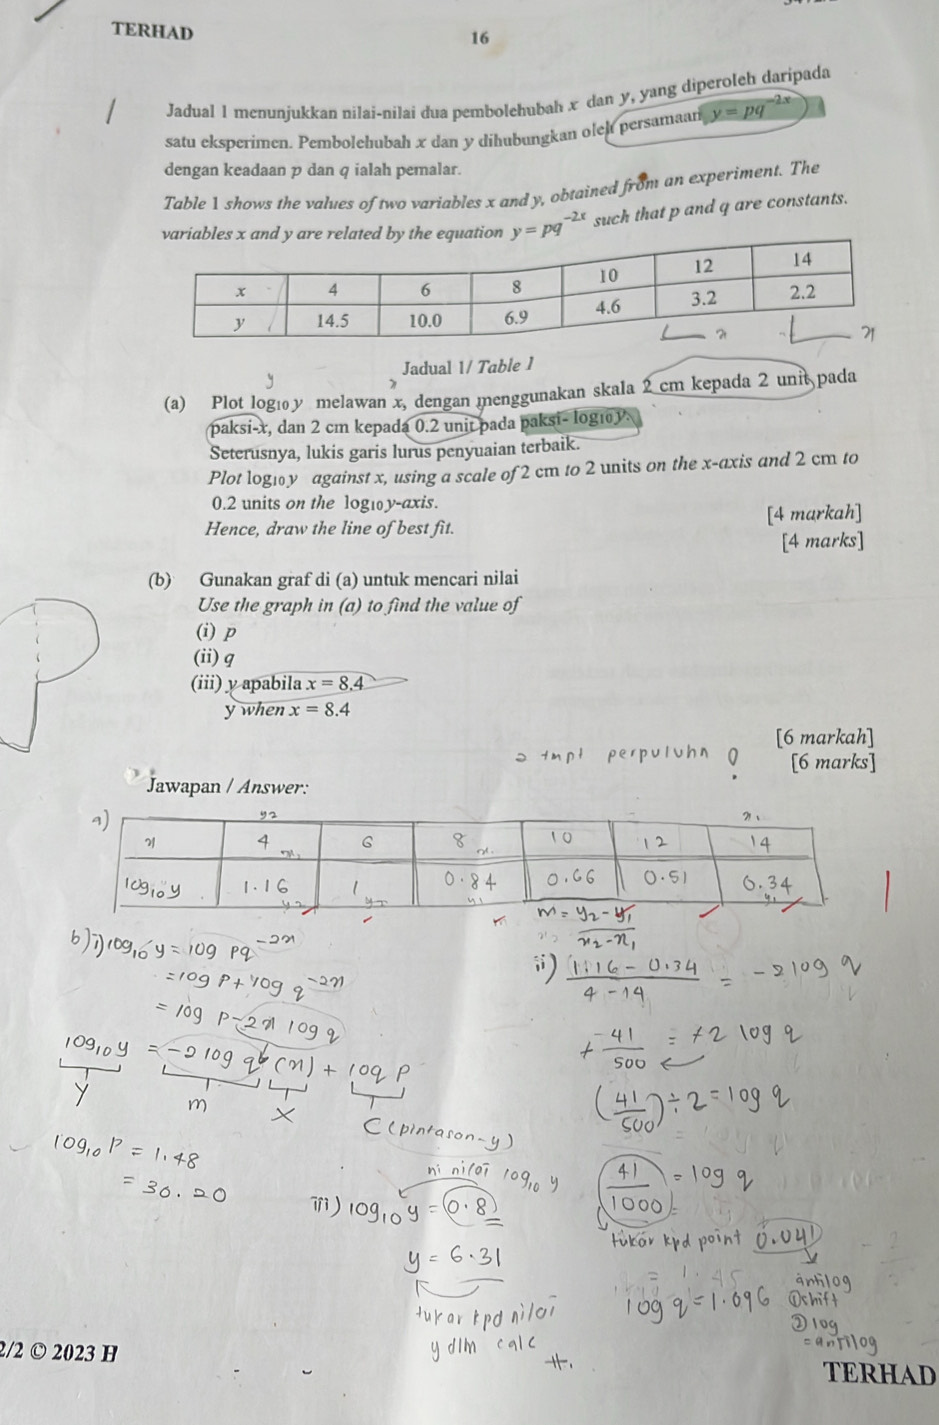 TERHAD
16
Jadual 1 menunjukkan nilai-nilai dua pembolehubah x dan y, yang diperoleh daripada
satu eksperimen. Pembolehubah x dan y dihubungkan oleh persamaan y = pq^{-2x}
dengan keadaan p dan q ialah pemalar.
Table 1 shows the values of two variables x and y, obtained from an experiment. The
variables x and y are related by the equation y = pq^{-2x} such that p and q are constants.
x 4 6 8 10 12 14
y 14.5 10.0 6.9 4.6 3.2 2.2
Jadual 1/ Table 1
y x
(a) Plot log₁₀ y melawan x, dengan menggunakan skala 2 cm kepada 2 unit pada
paksi-x, dan 2 cm kepada 0.2 unit pada paksi- log₁₀ y.
Seterusnya, lukis garis lurus penyuaian terbaik.
Plot log₁₀ y against x, using a scale of 2 cm to 2 units on the x-axis and 2 cm to
0.2 units on the log₁₀ y-axis.
Hence, draw the line of best fit.
[4 markah]
[4 marks]
(b) Gunakan graf di (a) untuk mencari nilai
Use the graph in (a) to find the value of
(i) p
(ii) q
(iii) y apabila x = 8.4
y when x = 8.4
[6 markah]
[6 marks]
2 tmpt perpuluhn
Jawapan / Answer:
a)
x 4 6 8 10 12 14
log₁₀ y 1.16 1 0.84 0.66 0.51 0.34
m = y₂ - y₁ / x₂ - x₁
b) i) log₁₀ y = log pq^{-2x}
= log p + log q^{-2x}
= log p - 2x log q
log₁₀ y = -2 log q (x) + log p
Y m X C (pintasan-y)
log₁₀ p = 1.48
= 30.20
ii) 1.16 - 0.34 / 4 - 14 = -2 log q
-41/500 = -2 log q
(41/500) ÷ 2 = log q
41/1000 = log q
tukar kpd point 0.041
antilog
log q = 1.096
① shift
② log
= antilog
iii) log₁₀ y = 0.8
ni nilai log₁₀ y
y = 6.31
tukar kpd nilai
y dlm calc
2/2 © 2023 H
TERHAD